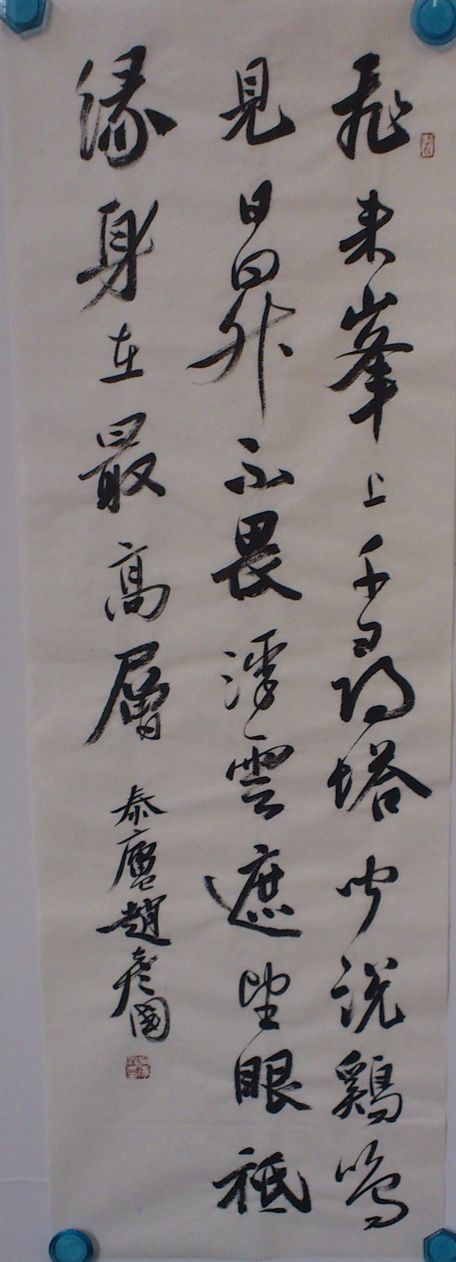 飛来峯上千尋塔聞説鷄鳴
見日昇不畏浮雲遮望眼祗
緣身在最高層
泰廬趙彦國